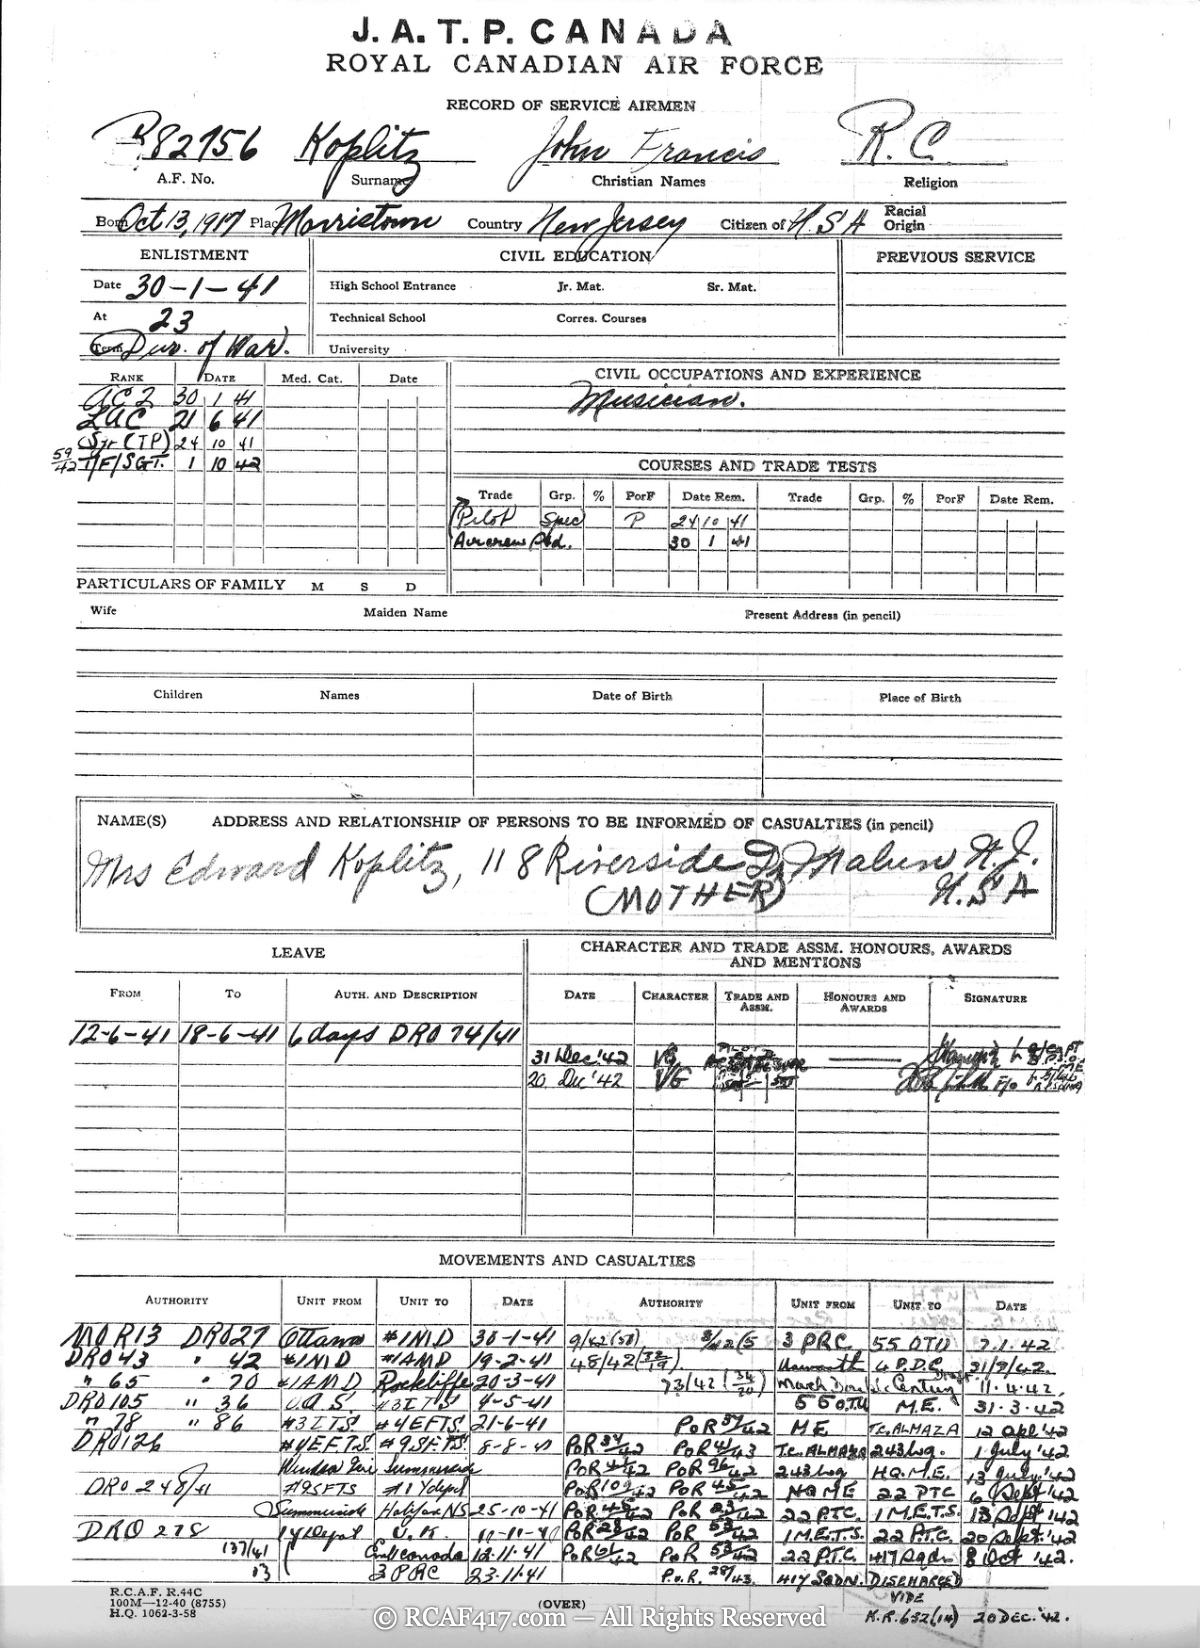 J. A. T. P. CANADA
ROYAL CANADIAN AIR FORCE
RECORD OF SERVICE AIRMEN
R82756 Koplitz John Francis R.C.
A.F. No. Surname Christian Names Religion
Born Oct 13, 1917 Place Morristown Country New Jersey Citizen of U.S.A Racial Origin
ENLISTMENT CIVIL EDUCATION PREVIOUS SERVICE
Date 30-1-41 High School Entrance Jr. Mat. Sr. Mat.
At 23 Technical School Corres. Courses
Term Dur. of War. University
RANK DATE Med. Cat. Date CIVIL OCCUPATIONS AND EXPERIENCE
AC2 30 1 41 Musician.
LAC 21 6 41
(Sgt (TP) 24 10 41
59/42 T/F/SGT. 1 10 42 COURSES AND TRADE TESTS
Trade Grp. % PorF Date Rem. Trade Grp. % PorF Date Rem.
(Pilot Spec) P 24 10 41
Aircrew Std. 30 1 41
PARTICULARS OF FAMILY M S D
Wife Maiden Name Present Address (in pencil)
Children Names Date of Birth Place of Birth
NAME(S) ADDRESS AND RELATIONSHIP OF PERSONS TO BE INFORMED OF CASUALTIES (in pencil)
Mrs Edward Koplitz, 118 Riverside Dr, N.J.
(MOTHER) U.S.A
LEAVE CHARACTER AND TRADE ASSM. HONOURS, AWARDS AND MENTIONS
FROM TO AUTH. AND DESCRIPTION DATE CHARACTER TRADE AND ASSM. HONOURS AND AWARDS SIGNATURE
12-6-41 18-6-41 6 days DRO 74/41
31 Dec '42 VG
20 Dec '42 VG
MOVEMENTS AND CASUALTIES
AUTHORITY UNIT FROM UNIT TO DATE AUTHORITY UNIT FROM UNIT TO DATE
MOR13 DRO27 Ottawa #1MD 30-1-41 9/42 3 PRC 55 OTU 7.1.42
DRO43 " 42 #1MD #1AMD 19-2-41 48/42 Usworth 21/2/42.
" 65 " 70 #1AMD Rockcliffe 20-3-41 73/42 11.4.42.
DRO105 " 36 #3ITS 4-5-41 55 OTU M.E. 31.3.42
" 78 " 86 #3ITS. #4EFTS. 21-6-41 PoR M.E ALMAZA 12 Apl '42
DRO126 #4EFTS. #9SFTS. 8-8-41 PoR PoR ALMAZA 243 Wg. 1 July '42
Summerside PoR PoR 243 Wg H.Q.M.E. 13 July '42
DRO 248/41 #9SFTS #1Ydepot PoR PoR HQME 22 PTC 6 Sept '42
Summerside Halifax NS 25-10-41 PoR PoR 22 P.T.C. 1 M.E.T.S. 13 Sept '42
DRO 278 1YDepot U.K. PoR PoR 1 M.E.T.S. 22 P.T.C. 20 Sept. '42
137/41 12-11-41 PoR PoR 22 P.T.C. 417 Sqdn 8 Oct '42.
3 PRC 23-11-41 P.o.R. 28/43. 417 SQDN. DISCHARGED
R.C.A.F. R.44C VIDE
100M—12-40 (8755)
H.Q. 1062-3-58 (OVER) K.R. 652(14) 20 DEC. '42.
© RCAF417.com — All Rights Reserved